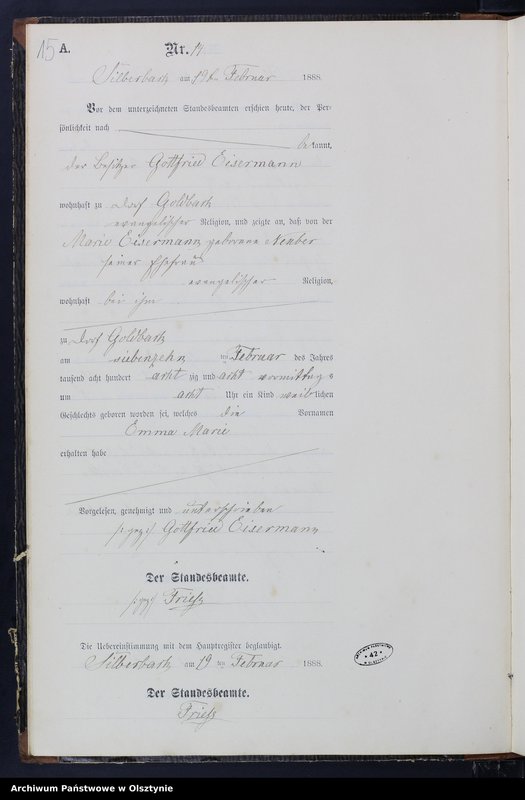 15 A. Nr. 14
Silberbach am 19ten Februar 1888.
Vor dem unterzeichneten Standesbeamten erschien heute, der Per-
sönlichkeit nach
bekannt,
der Besitzer Gottfried Eisermann
wohnhaft zu Dorf Goldbach
evangelischer Religion, und zeigte an, daß von der
Marie Eisermann geborene Neuber
seiner Ehefrau
evangelischer Religion,
wohnhaft bei ihm
zu Dorf Goldbach
am siebenzehn ten Februar des Jahres
tausend acht hundert acht zig und acht vormittags
um acht Uhr ein Kind weiblichen
Geschlechts geboren worden sei, welches die Vornamen
Emma Marie
erhalten habe
Vorgelesen, genehmigt und unterschrieben
Gottfried Eisermann
Der Standesbeamte.
Friess
Die Uebereinstimmung mit dem Hauptregister beglaubigt.
Silberbach am 19 ten Februar 1888.
Der Standesbeamte.
Friess
* 42 *
Archiwum Państwowe w Olsztynie